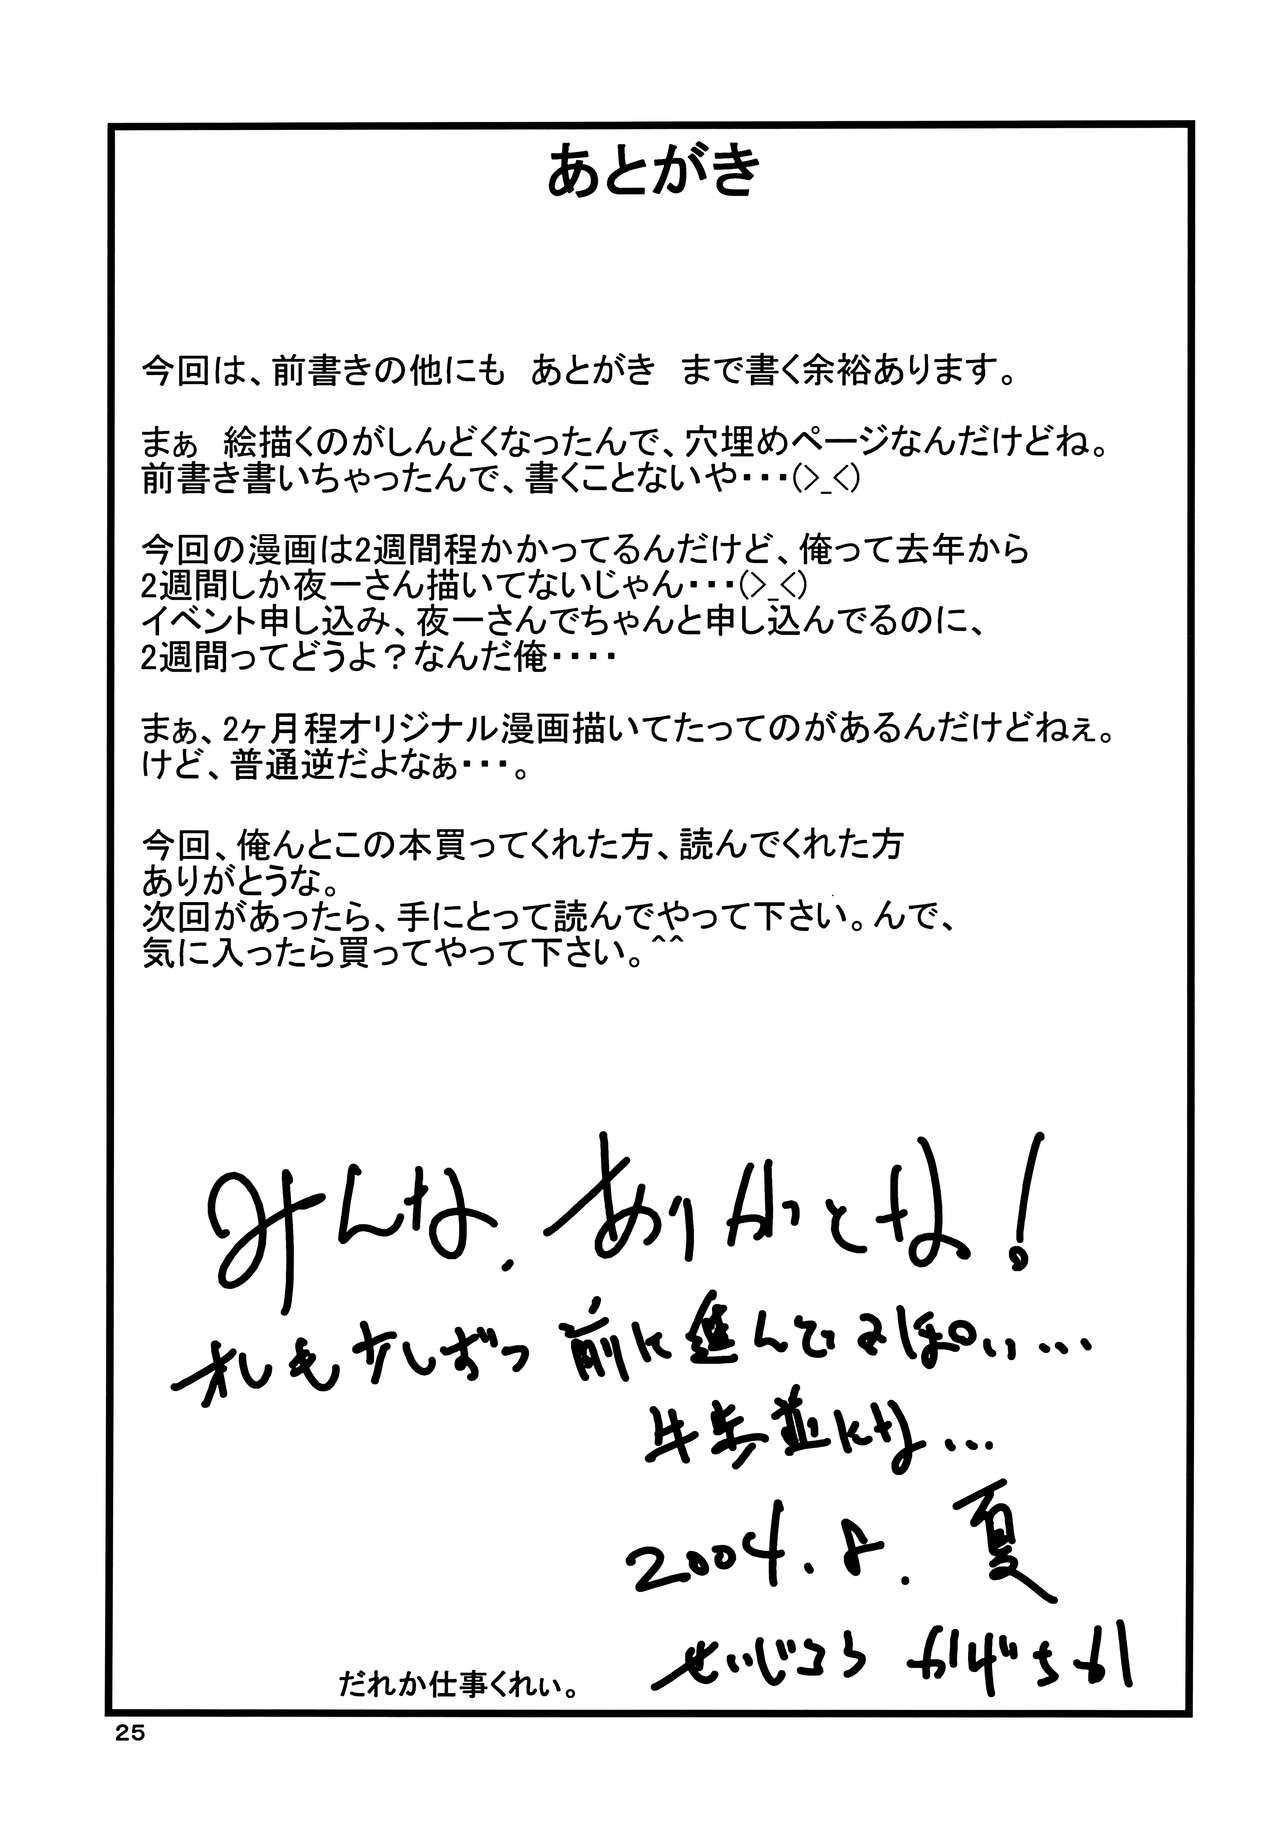 あとがき
今回は、前書きの他にも　あとがき　まで書く余裕あります。
まぁ　絵描くのがしんどくなったんで、穴埋めページなんだけどね。
前書き書いちゃったんで、書くことないや・・・(>_<)
今回の漫画は2週間程かかってるんだけど、俺って去年から
2週間しか夜一さん描いてないじゃん・・・(>_<)
イベント申し込み、夜一さんでちゃんと申し込んでるのに、
2週間ってどうよ？なんだ俺・・・・
まぁ、2ヶ月程オリジナル漫画描いてたってのがあるんだけどねぇ。
けど、普通逆だよなぁ・・・。
今回、俺んとこの本買ってくれた方、読んでくれた方
ありがとうな。
次回があったら、手にとって読んでやって下さい。んで、
気に入ったら買ってやって下さい。^^
みんな、ありがとな！
オレも少しずつ前に進んでるぽい...
牛歩並にな...
2004.8.夏
せいじころ
だれか仕事くれぃ。
25